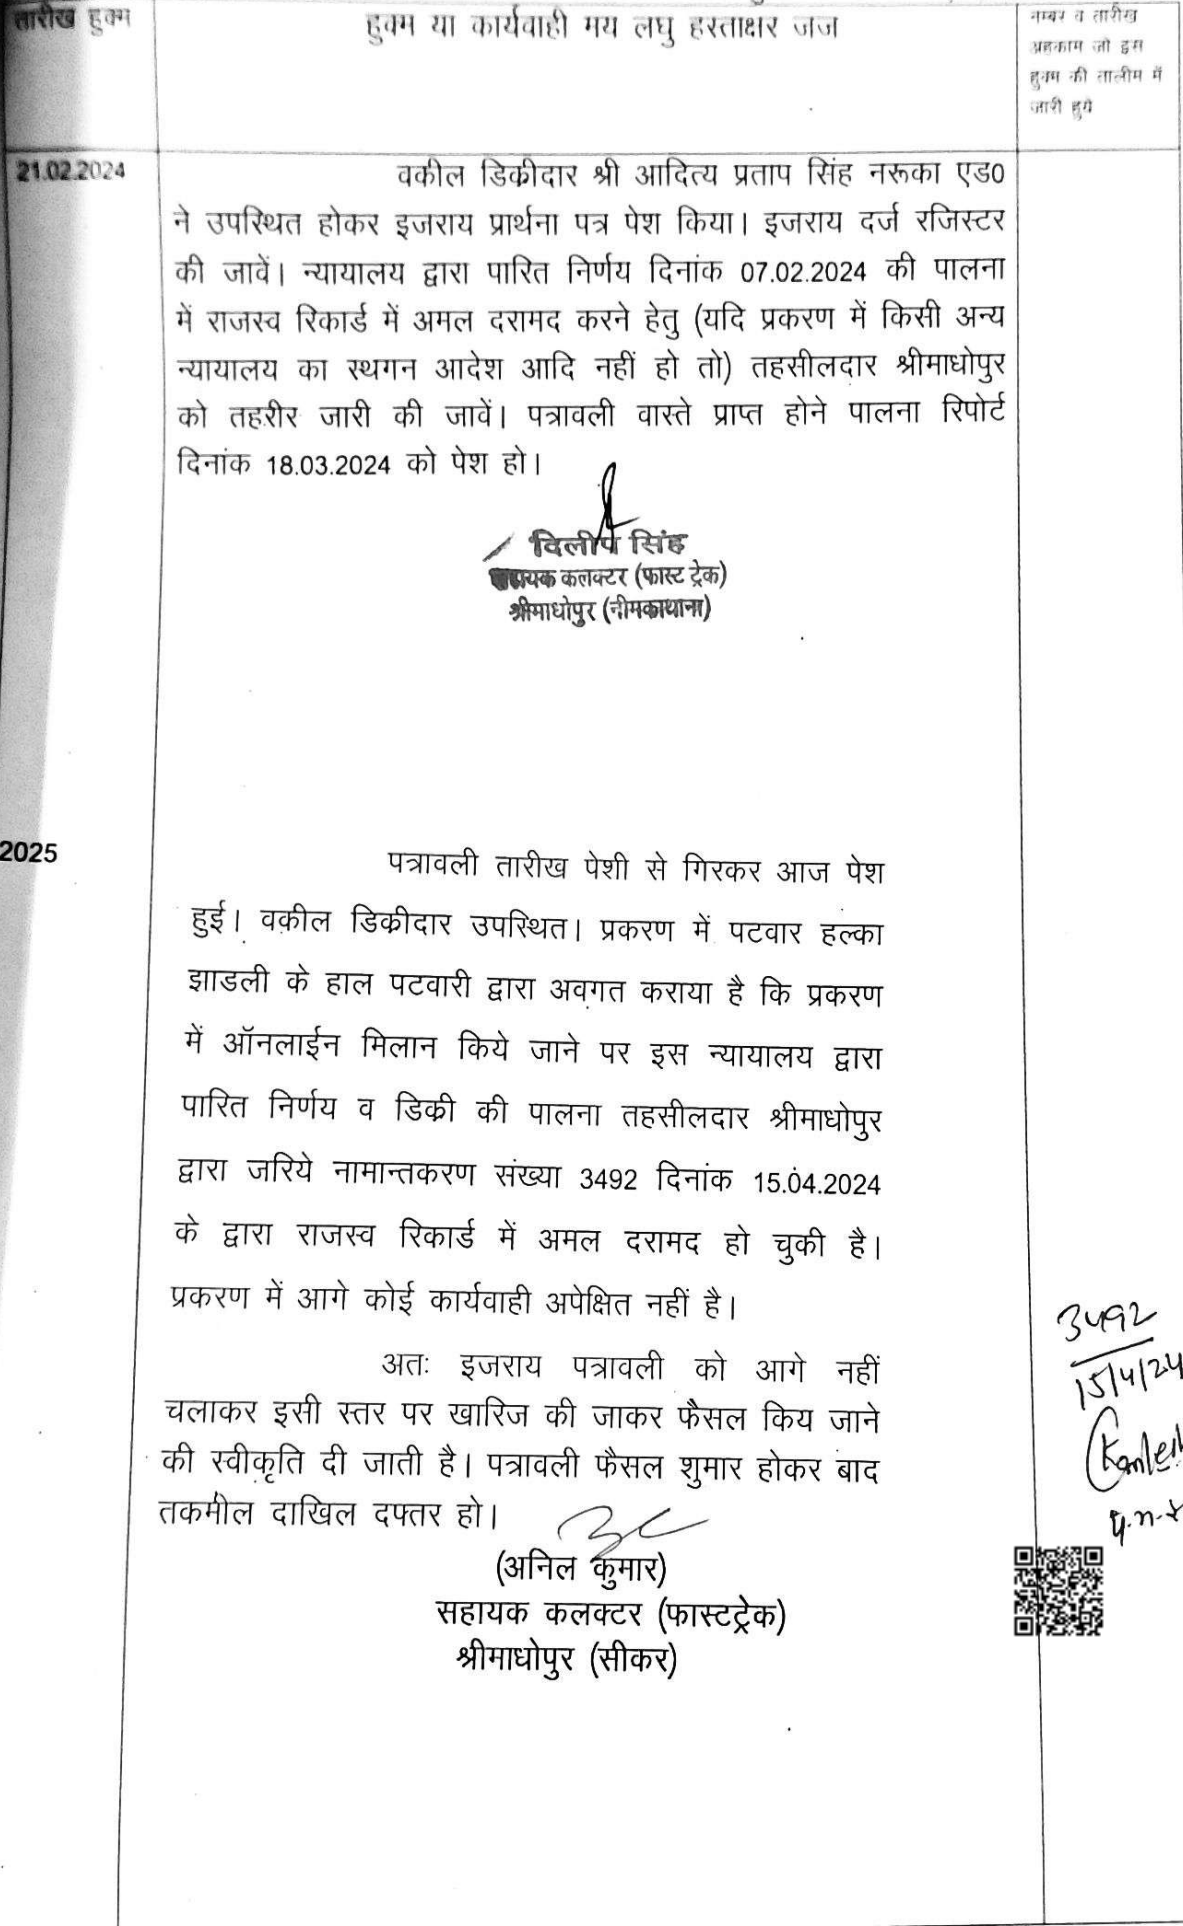 तारीख हुक्म
हुक्म या कार्यवाही मय लघु हस्ताक्षर जज
नम्बर व तारीख
अहकाम जो इस
हुक्म की तालीम में
जारी हुये
21.02.2024
वकील डिकीदार श्री आदित्य प्रताप सिंह नरूका एड0
ने उपस्थित होकर इजराय प्रार्थना पत्र पेश किया। इजराय दर्ज रजिस्टर
की जावें। न्यायालय द्वारा पारित निर्णय दिनांक 07.02.2024 की पालना
में राजस्व रिकार्ड में अमल दरामद करने हेतु (यदि प्रकरण में किसी अन्य
न्यायालय का स्थगन आदेश आदि नहीं हो तो) तहसीलदार श्रीमाधोपुर
को तहरीर जारी की जावें। पत्रावली वास्ते प्राप्त होने पालना रिपोर्ट
दिनांक 18.03.2024 को पेश हो।
दिलीप सिंह
सहायक कलक्टर (फास्ट ट्रेक)
श्रीमाधोपुर (नीमकाथाना)
2025
पत्रावली तारीख पेशी से गिरकर आज पेश
हुई। वकील डिकीदार उपस्थित। प्रकरण में पटवार हल्का
झाडली के हाल पटवारी द्वारा अवगत कराया है कि प्रकरण
में ऑनलाईन मिलान किये जाने पर इस न्यायालय द्वारा
पारित निर्णय व डिकी की पालना तहसीलदार श्रीमाधोपुर
द्वारा जरिये नामान्तकरण संख्या 3492 दिनांक 15.04.2024
के द्वारा राजस्व रिकार्ड में अमल दरामद हो चुकी है।
प्रकरण में आगे कोई कार्यवाही अपेक्षित नहीं है।
अतः इजराय पत्रावली को आगे नहीं
चलाकर इसी स्तर पर खारिज की जाकर फैसल किय जाने
की स्वीकृति दी जाती है। पत्रावली फैसल शुमार होकर बाद
तकमील दाखिल दफ्तर हो।
(अनिल कुमार)
सहायक कलक्टर (फास्टट्रेक)
श्रीमाधोपुर (सीकर)
3492
15/4/24